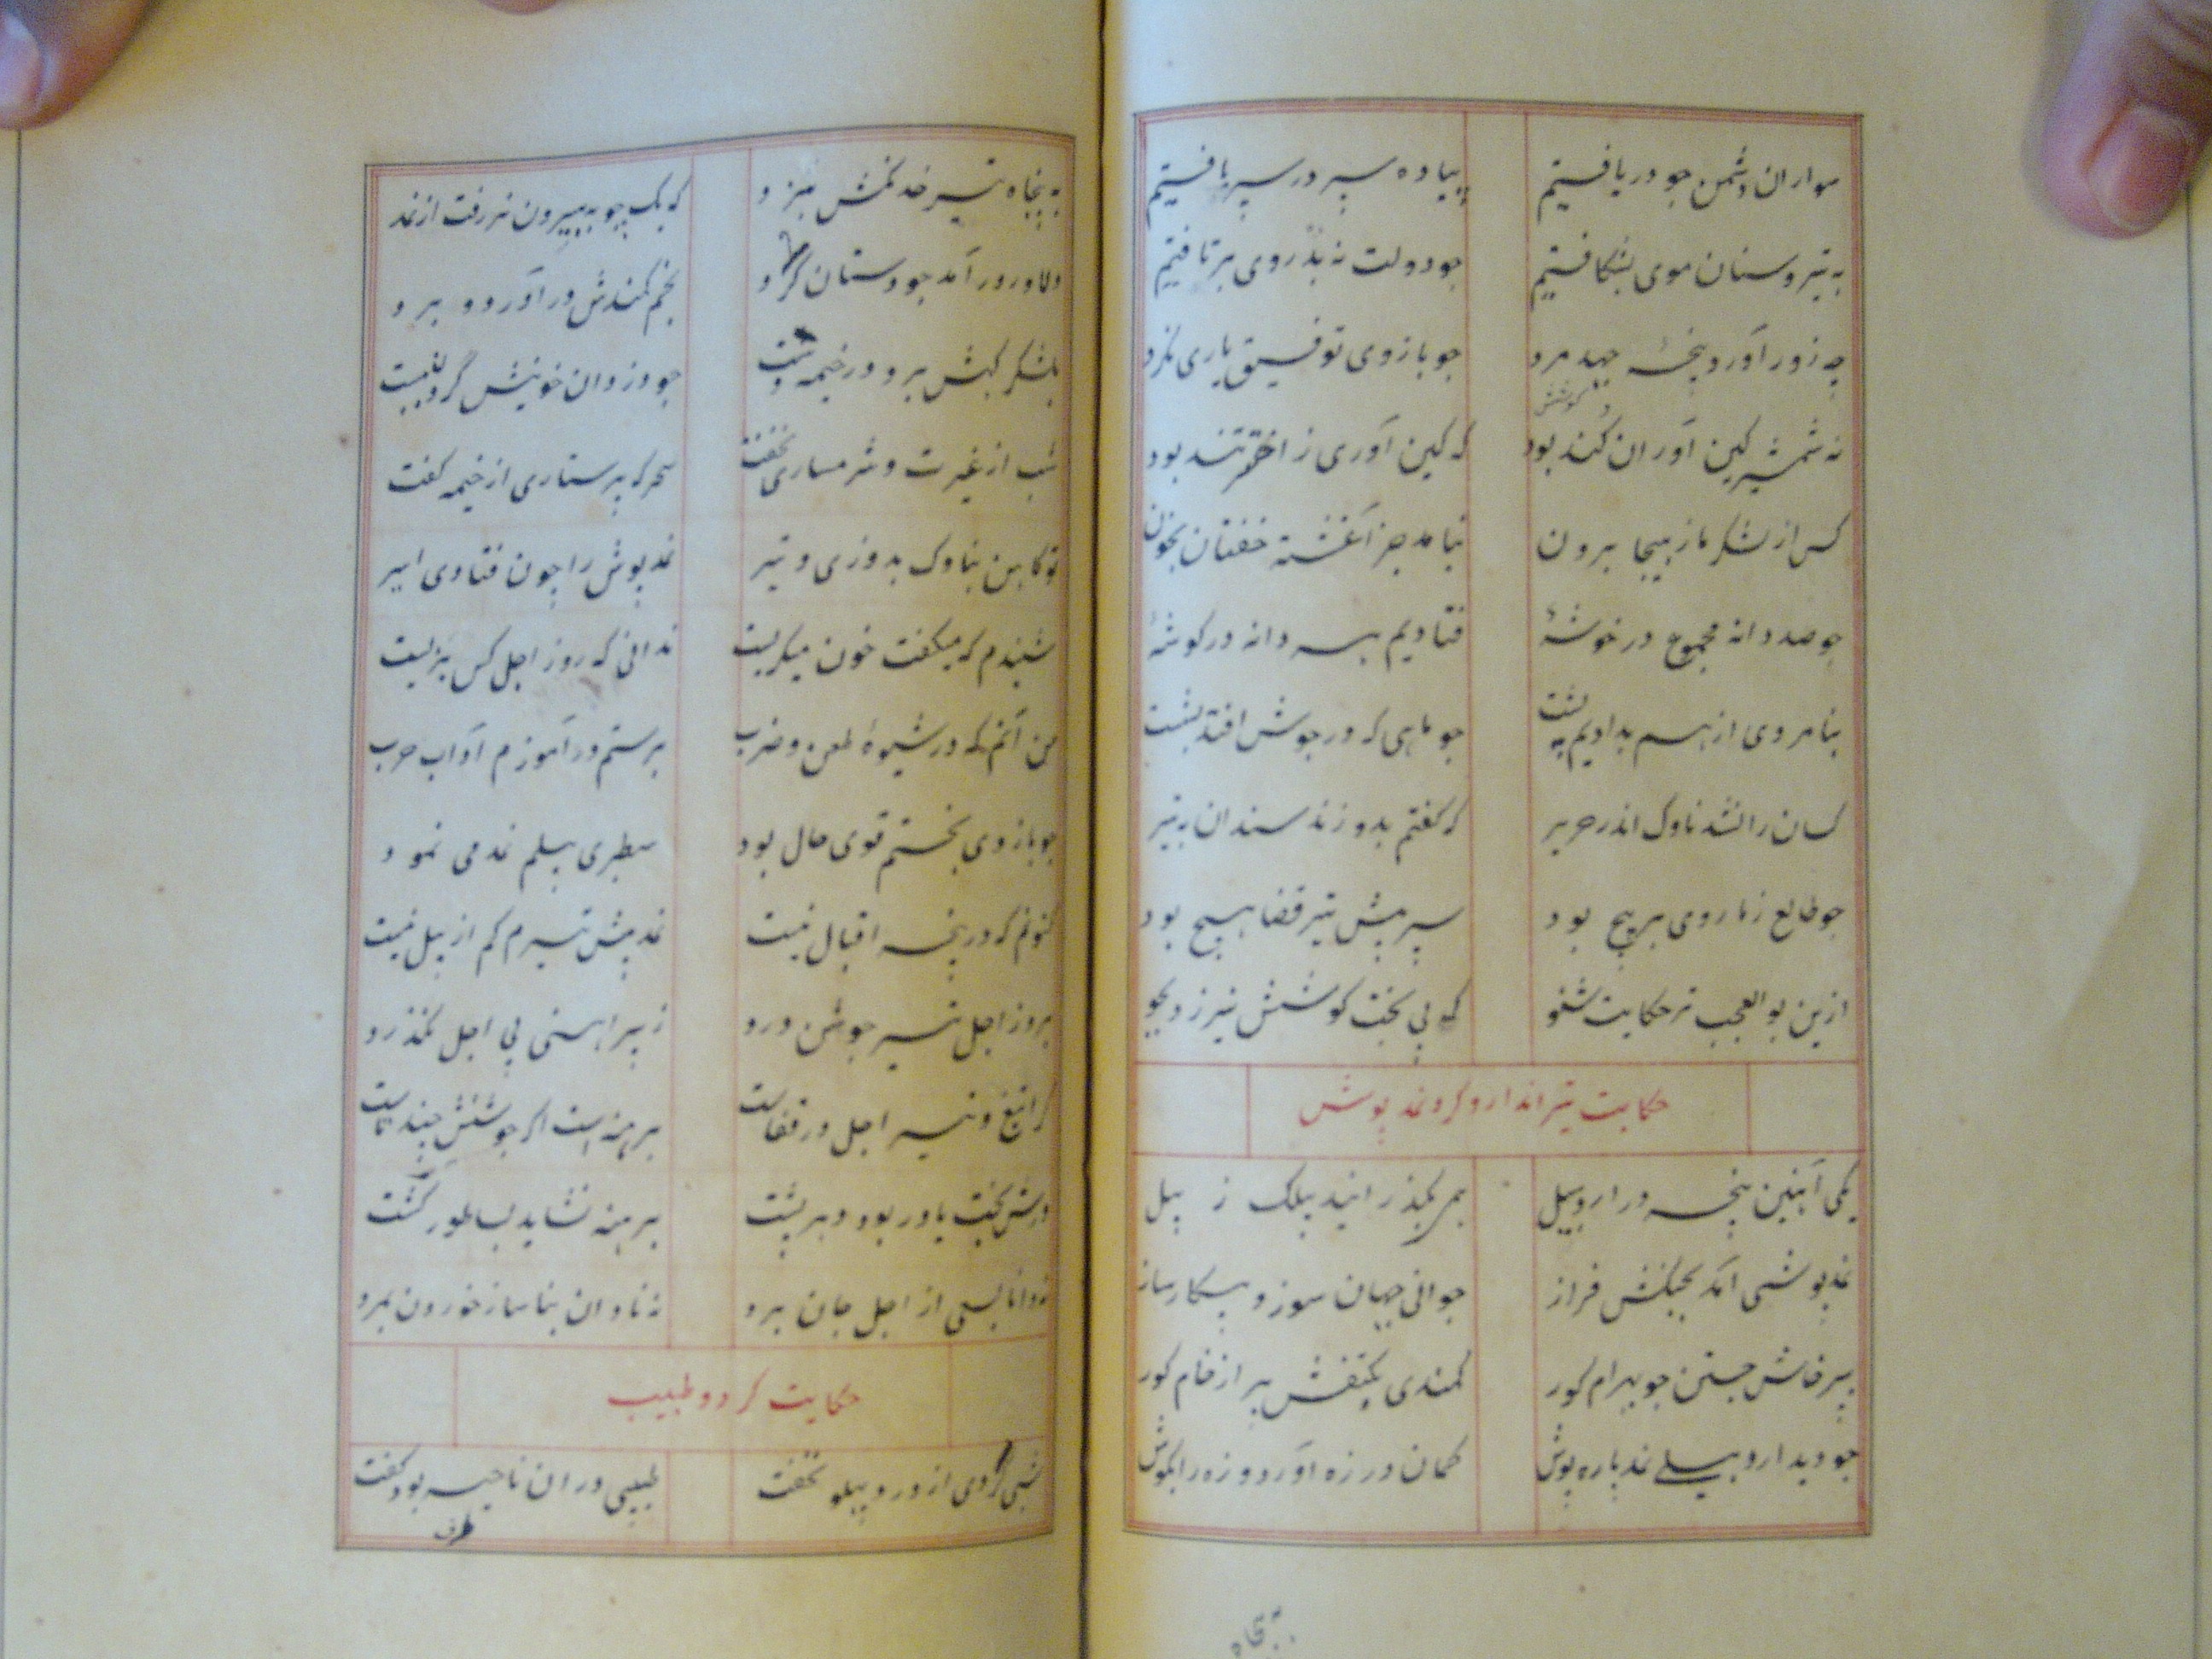 سواران دشمن چو دریافتیم پیاده سپر در سپر بافتیم
به تیر و سنان موی بشکافتیم چو دولت نه بد روی برتافتیم
چه زور آورد پنجه جهد مرد چو بازوی توفیق یاری نکرد
کوشش
نه شمشیر کین آوران کند بود که کین آوری ز اختر تند بود
کس از لشکر ما ز هیجا برون نیامد جز آغشته خفتان بخون
چو صد دانه مجموع در خوشهٔ فتادیم هر دانه در گوشهٔ
بنامردی از هم بدادیم پشت چو ماهی که در جوشن افتد بشست
کسان را نشد ناوک اندر حریر که گفتم بدوزند سندان به تیر
چو طالع ز ما روی برپیچ بود سپر پیش تیر قضا هیچ بود
ازین بوالعجب تر حکایت شنو که بی بخت کوشش نیرزد بجو
حکایت تیرانداز و کرد نمدپوش
یکی آهنین پنجه در اردبیل همی بگذرانید بیلک ز بیل
نمدپوشی آمد بجنگش فراز جوانی جهان سوز و پیکار ساز
بپرخاش جستن چو بهرام گور کمندی بکتفش بر از خام گور
چو دید اردبیلی نمد پاره پوش کمان در زه آورد و زه را بگوش
به پنجاه
به پنجاه تیر خدنگش بزد که یک چوبه بیرون نرفت از نمد
دلاور درآمد چو دستان گرد بخم کمندش درآورد و برد
بلشکرگهش برد و در خیمه دست چو دزدان خونیش گردن ببست
شب از غیرت و شرمساری نخفت سحرگه پرستاری از خیمه گفت
تو کاهن بناوک بدوزی و تیر نمدپوش را چون فتادی اسیر
شنیدم که میگفت خون میگریست ندانی که روز اجل کس نزیست
من آنم که در شیوهٔ طعن و ضرب برستم درآموزم آداب حرب
چو بازوی بختم قوی حال بود سطبری بیلم نمد می نمود
کنونم که در پنجه اقبال نیست نمد پیش تیرم کم از بیل نیست
بروز اجل تیر جوشن درد ز پیراهنی بی اجل نگذرد
کرا تیغ و تیر اجل در قفاست برهنه است اگر جوشنش چند تاست
ورش بخت یاور بود دهر پشت برهنه نشاید بساطور کشت
نه دانا بسعی از اجل جان ببرد نه نادان بناساز خوردن بمرد
حکایت کرد و طبیب
شبی کردی از درد پهلو نخفت طبیبی در آن ناحیه بود گفت
طرف